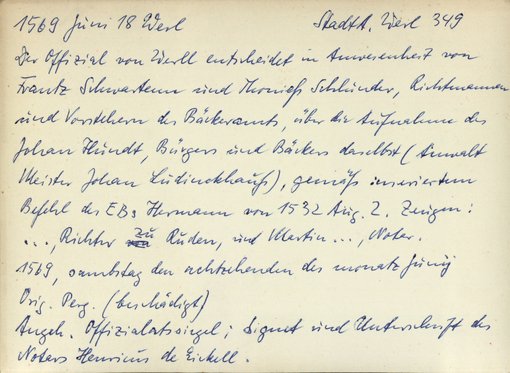 1569 Juni 18 Werl StadtA. Werl 349
Der Offizial von Werll entscheidet in Anwesenheit von
Frantz Schwartenn und Thonieß Schlünder, Richtmannen
und Vorstehern des Bäckeramts, über die Aufnahme des
Johan Hundt, Bürgers und Bäckers daselbst (Anwalt
Meister Johan Ludinckhauß), gemäß inseriertem
Befehl des EBs Hermann von 1532 Aug. 2. Zeugen:
..., Richter zu Ruden, und Martin ..., Notar.
1569, sambstag den achtzehenden des monatz Junij
Orig. Perg. (beschädigt)
Angeh. Offizialatssiegel; Signet und Unterschrift des
Notars Henricus de Eickell.